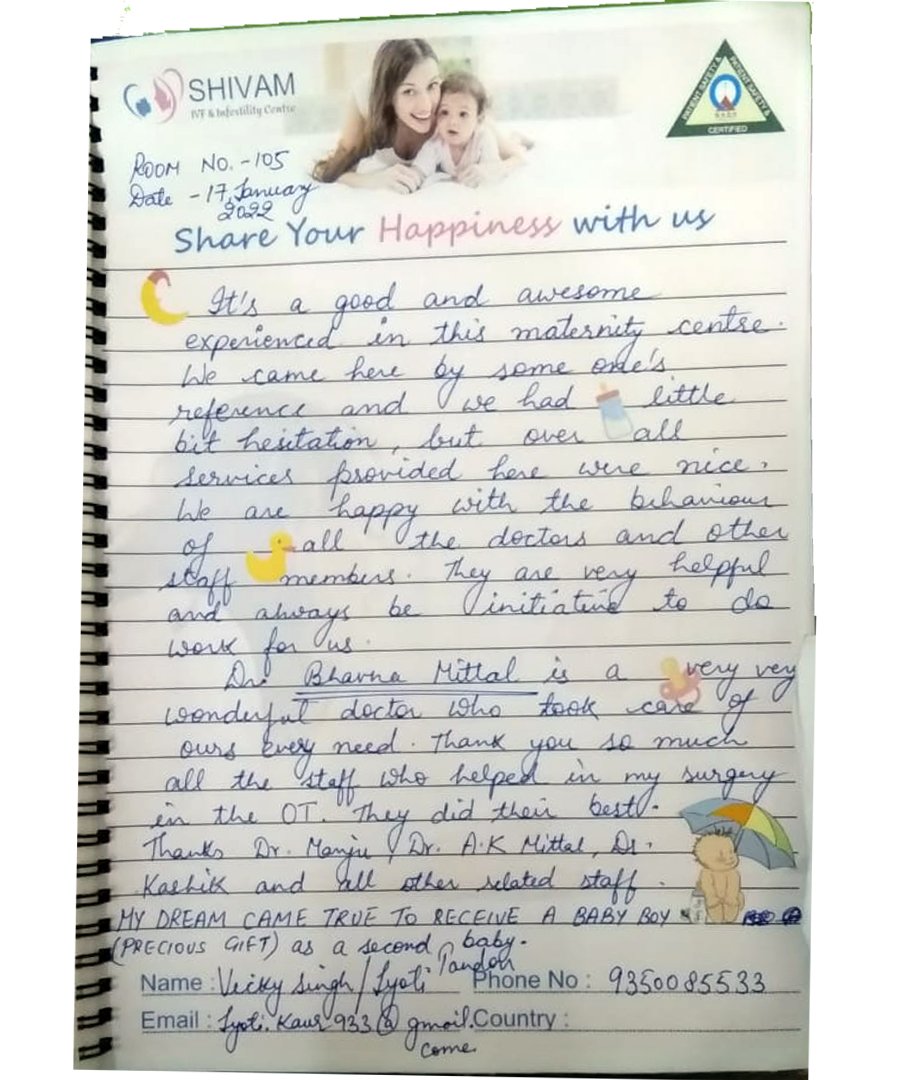 SHIVAM
IVF & Infertility Centre
PATIENT SAFETY &
CERTIFIED
ROOM NO. - 105
Date - 17, January
2022
Share Your Happiness with us
It's a good and awesome
experienced in this maternity centre.
We came here by some one's
reference and we had little
bit hesitation, but over all
services provided here were nice.
We are happy with the behaviour
of all the doctors and other
staff members. They are very helpful
and always be initiative to do
work for us.
Dr. Bhavna Mittal is a very very
wonderful doctor who took care of
ours every need. Thank you so much
all the staff who helped in my surgery
in the OT. They did their best.
Thanks Dr. Manju, Dr. A.K Mittal, Dr.
Kashik and all other related staff.
MY DREAM CAME TRUE TO RECEIVE A BABY BOY
(PRECIOUS GIFT) as a second baby.
Name : Vicky Singh / Jyoti Tandon Phone No : 9350085533
Email : Jyoti.Kaur933@gmail. Country :
come